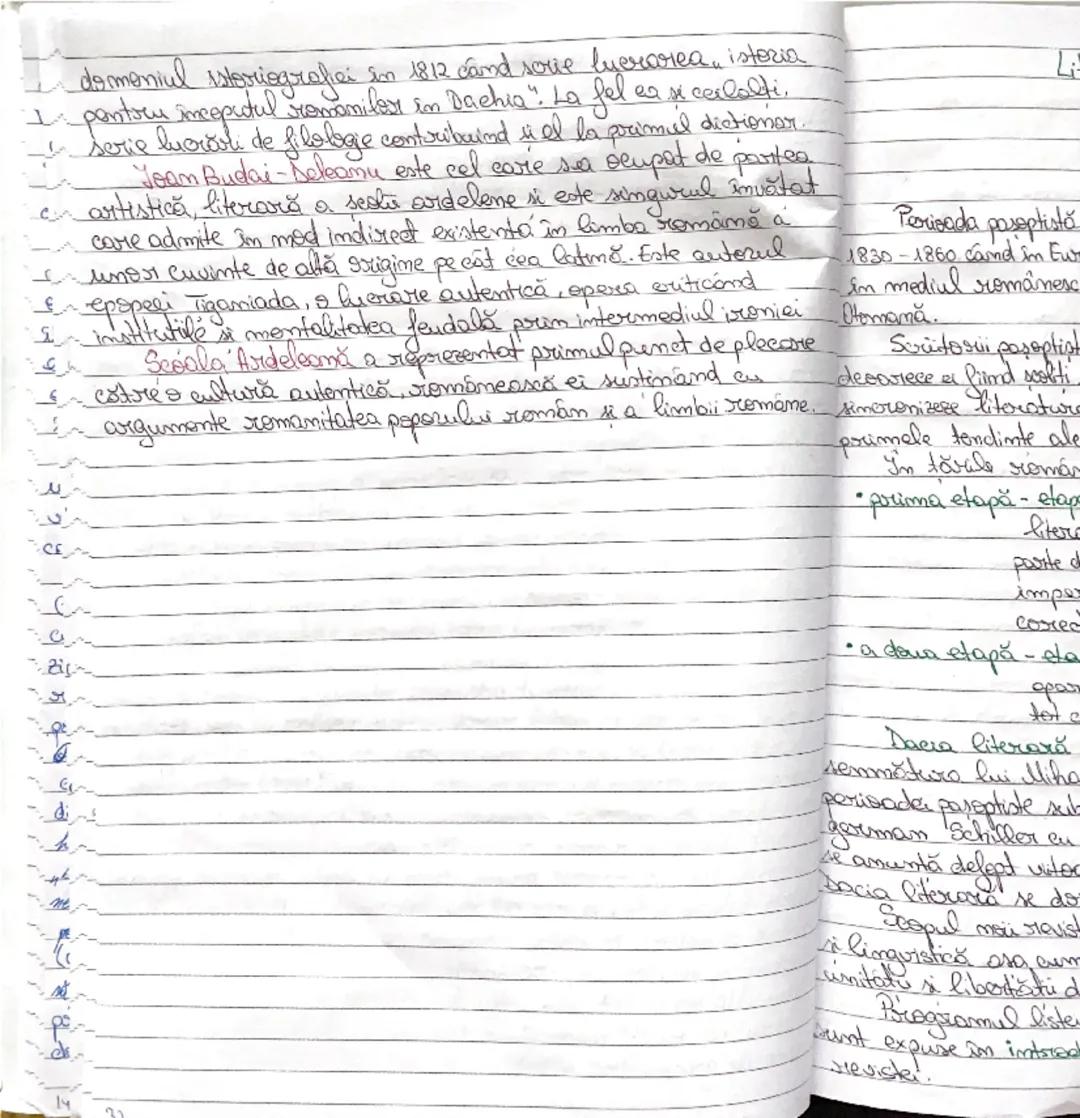 domeniul istoriografiei în 1812 când scrie lucrarea „istoria
pentru începutul romanilor în Dachia". La fel ca și ceilalți,
serie lucrări de filologie contribuind și el la primul dictionar.
Ioan Budai-Deleanu este cel care s-a ocupat de partea
artistică, literară a școlii ardelene si este singurul învățat
care admite în mod indirect existenta în limba română a
unor cuvinte de altă origime pe cât cea latină. Este autorul
epopeei Țiganiada, o lucrare autentică, opera criticând
institutile si mentalitatea feudală prin intermediul ironiei
Scoala Ardeleană a reprezentat primul punct de plecare
către o cultură autentică, românească ei sustinând cu
argumente romanitatea poporului român si a limbii române.
Li
Perioada pasoptistă
1830-1860 când în Eur
în mediul românesc
Otomană.
Scriitorii pasoptist
deoarece ei fiind scoliti
sincronizeze literature
primele tendinte ale
În tările român
• prima etapă - etap
litera
parte d
imper
corec
• a doua etapă - eta
apar
tot c
Dacia literară
semnătura lui Miha
perioadei pasoptiste sub
german Schiller cu
se anuntă delapt viitor
Dacia literară se dor
Scopul noii revist
si lingvistică asa cum
unitătii si libertătii d
Programul liter
sunt expuse în introd
revistei.
u
v
ce
c
a
zis
r
pe
di
h
me
pe
st
pe
de
14